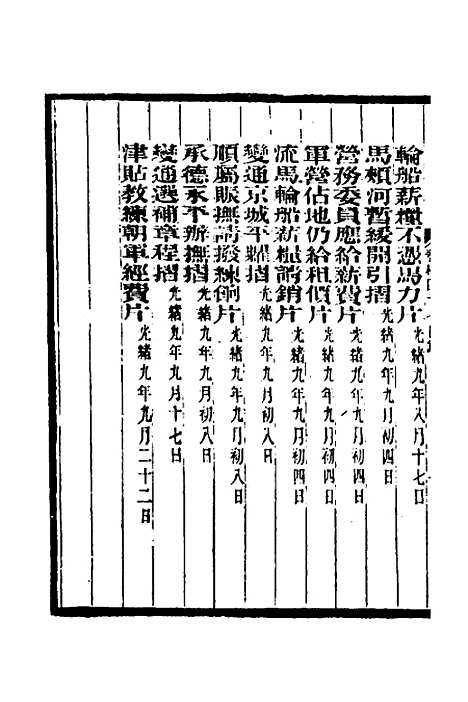 輪船薪糧不憑馬力片 光緒九年八月十七日
馬頰河暫緩開引摺 光緒九年九月初四日
營務委員應給薪費片 光緒九年九月初四日
軍營佔地仍給租價片 光緒九年九月初四日
流馬輪船薪糧請銷片 光緒九年九月初四日
變通京城平糶摺 光緒九年九月初八日
順屬賑撫請撥練餉片 光緒九年九月初八日
承德永平辦撫摺 光緒九年九月初八日
變通選補章程摺 光緒九年九月十七日
津貼教練朝軍經費片 光緒九年九月二十二日